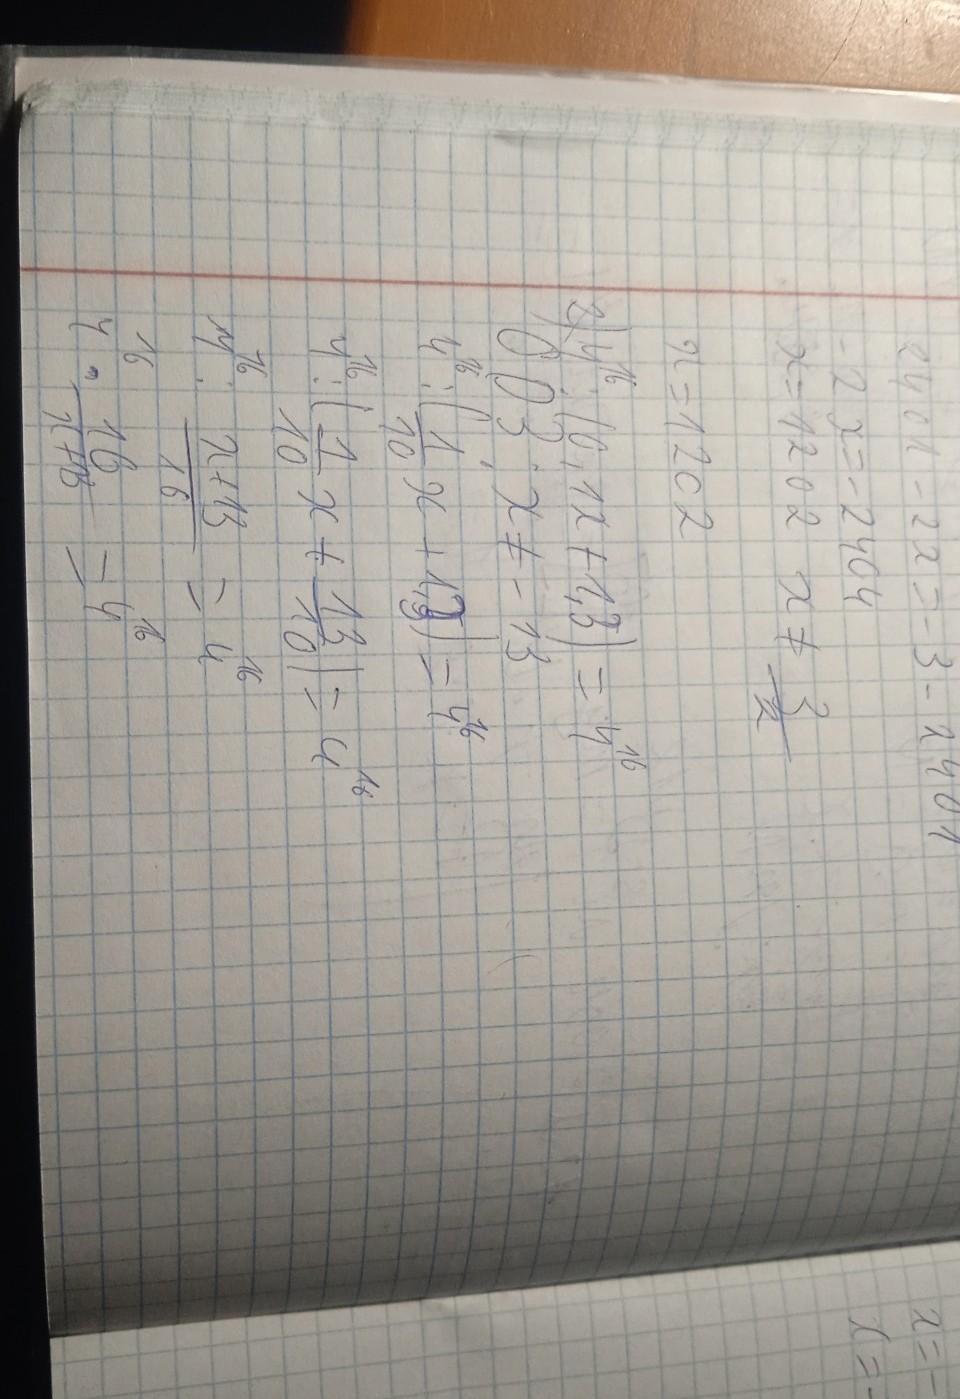 2401-2x=3-2401
-2x=-2404
x=1202 x≠ 3/2
x=1202
2) 4^16 : (0,1x+1,3) = 4^16
ОДЗ: x≠-13
4^16 : (1/10 x + 1,3) = 4^16
4^16 : (1/10 x + 13/10) = 4^16
4^16 : x+13/16 = 4^16
4^16 · 16/x+13 = 4^16
x=-
x=